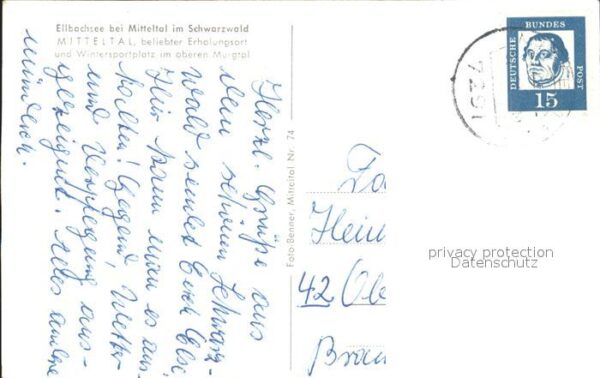 Ellbachsee bei Mitteltal im Schwarzwald
MITTELTAL, beliebter Erholungsort
und Wintersportplatz im oberen Murgtal
Herzl. Grüße aus
dem schönen Schwarz-
wald sendet Euch Else
Hier kann man es aus-
halten! Gegend, Wetter
und Verpflegung aus-
gezeichnet. Alles andere
mündlich.
Foto: Benner, Mitteltal Nr. 74
DEUTSCHE
BUNDES
POST
15
7291
Fa
Hein
42 Obe
Brau
privacy protection
Datenschutz